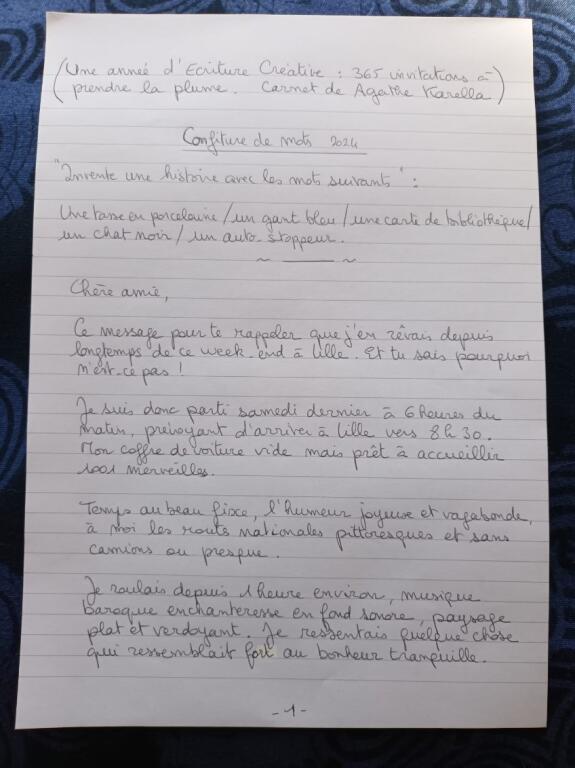 (Une année d'Ecriture Créative : 365 invitations à
prendre la plume. Carnet de Agathe Karella)
Confiture de mots 2024
"Invente une histoire avec les mots suivants" :
Une tasse en porcelaine / un gant bleu / une carte de bibliothèque /
un chat noir / un auto-stoppeur.
~ — ~
Chère amie,
Ce message pour te rappeler que j'en rêvais depuis
longtemps de ce week-end à Lille. Et tu sais pourquoi
n'est-ce pas !
Je suis donc parti samedi dernier à 6 heures du
matin, prévoyant d'arriver à Lille vers 8h30.
Mon coffre de voiture vide mais prêt à accueillir
1001 merveilles.
Temps au beau fixe, l'humeur joyeuse et vagabonde,
à moi les routes nationales pittoresques et sans
camions ou presque.
Je roulais depuis 1 heure environ, musique
baroque enchanteresse en fond sonore, paysage
plat et verdoyant. Je ressentais quelque chose
qui ressemblait fort au bonheur tranquille.
-1-